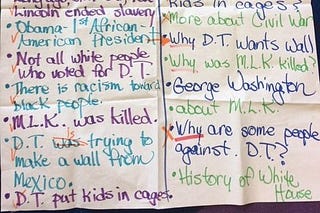 Lincoln ended slavery
• Obama-1st African-
American president
• Not all white people
who voted for D.T.
• There is racism toward
black people.
• M.L.K. was killed.
• D.T. was is trying to
make a wall from
Mexico.
• D.T. put kids in cages.
kids in cages?
• More about Civil War
• Why D.T. wants wall
• Why was M.L.K killed?
• George Washington
• about M.L.K.
• Why are some people
against D.T.?
• History of White
House